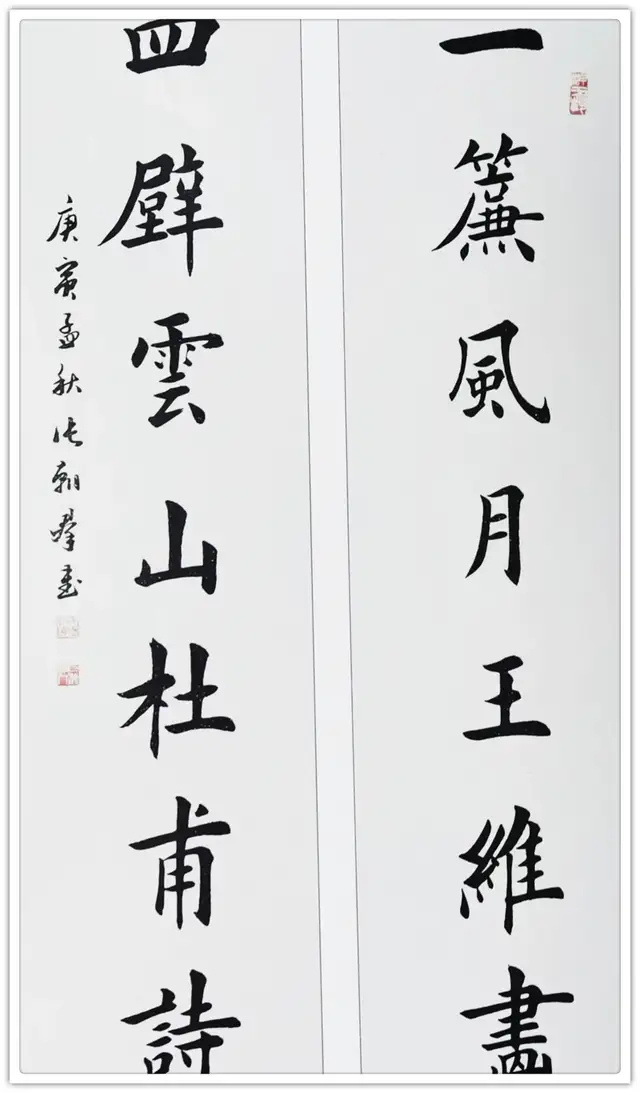 一簾風月王維畫
四壁雲山杜甫詩
庚寅孟秋張朝群書